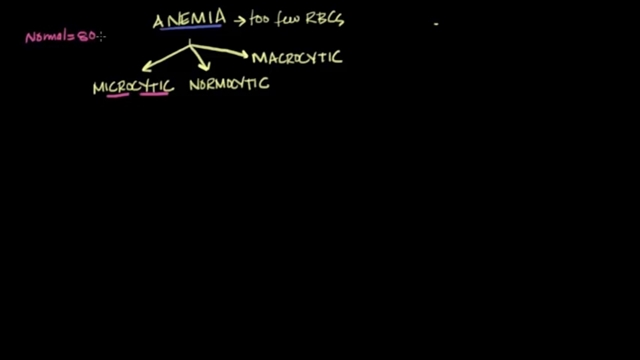 ANEMIA → too few RBCs
Normal = 80
MACROCYTIC
MICROCYTIC NORMOCYTIC